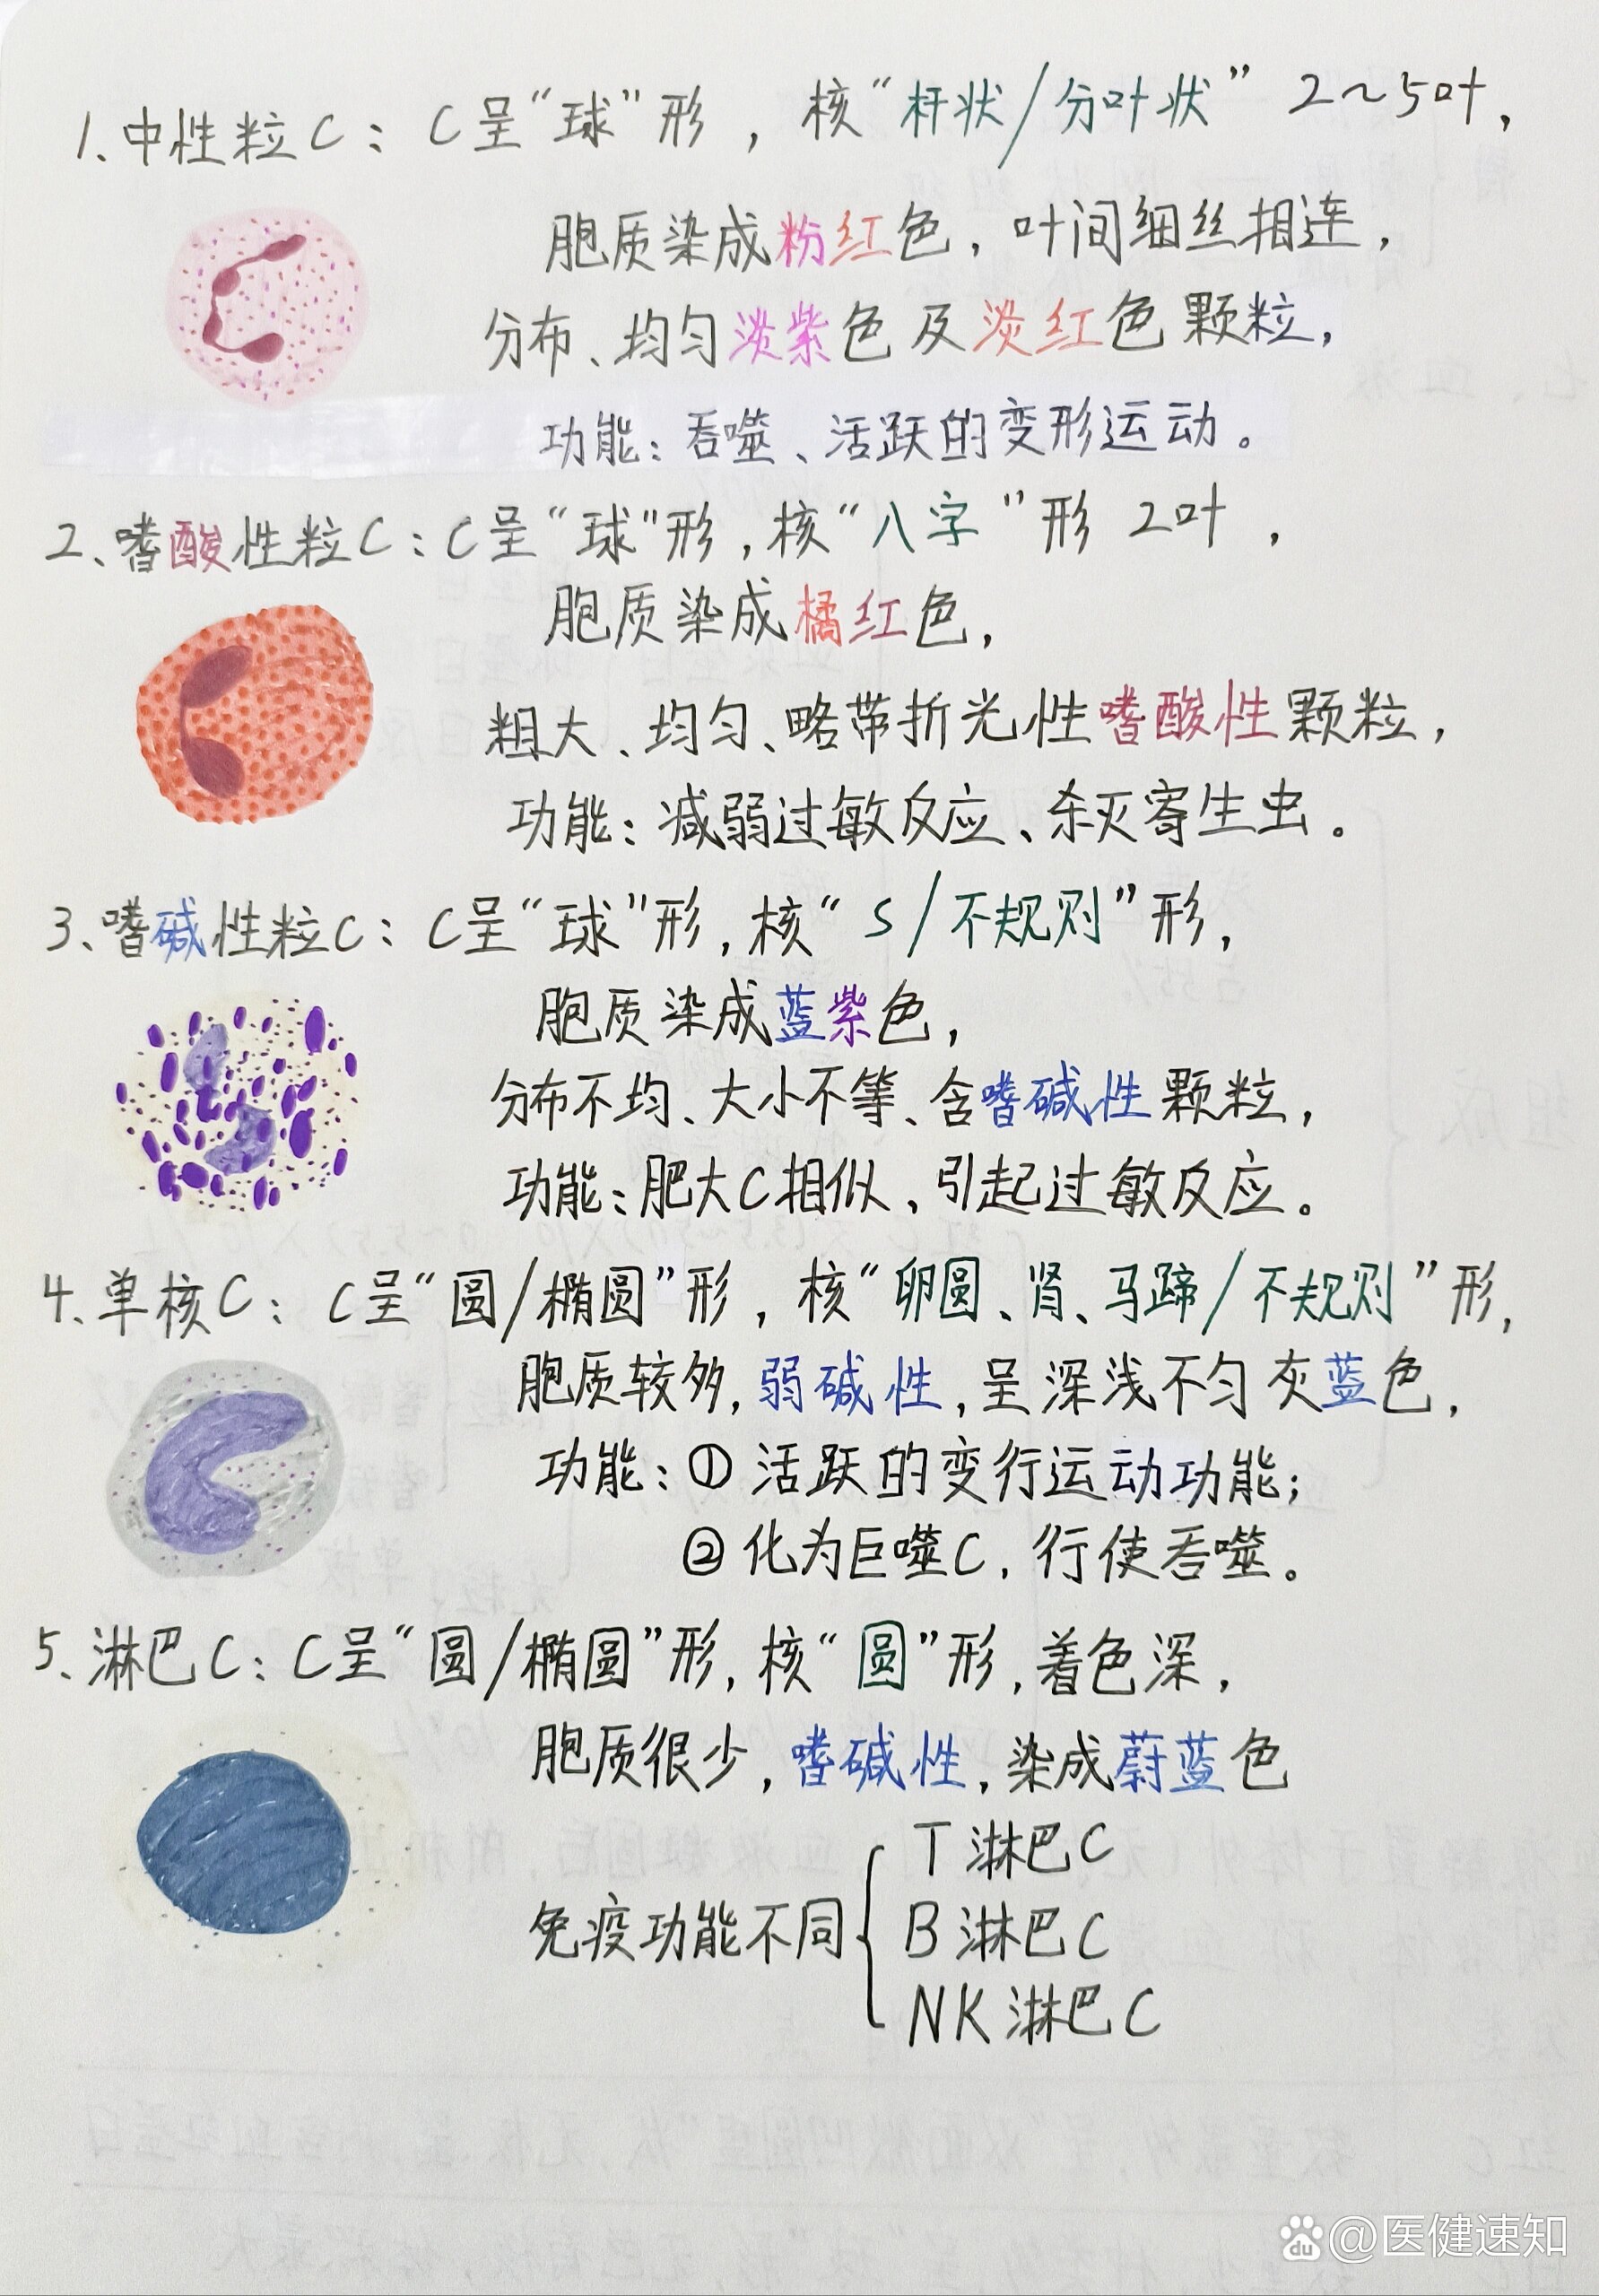 1、中性粒C：C呈“球”形，核“杆状/分叶状”2～5叶，
胞质染成粉红色，叶间细丝相连，
分布、均匀淡紫色及淡红色颗粒，
功能：吞噬、活跃的变形运动。
2、嗜酸性粒C：C呈“球”形，核“八字”形 2叶，
胞质染成橘红色，
粗大、均匀、略带折光性嗜酸性颗粒，
功能：减弱过敏反应、杀灭寄生虫。
3、嗜碱性粒C：C呈“球”形，核“S/不规则”形，
胞质染成蓝紫色，
分布不均、大小不等、含嗜碱性颗粒，
功能：肥大C相似、引起过敏反应。
4、单核C：C呈“圆/椭圆”形，核“卵圆、肾、马蹄/不规则”形，
胞质较多，弱碱性，呈深浅不匀灰蓝色，
功能：① 活跃的变行运动功能；
② 化为巨噬C，行使吞噬。
5、淋巴C：C呈“圆/椭圆”形，核“圆”形，着色深，
胞质很少，嗜碱性，染成蔚蓝色
免疫功能不同
T 淋巴C
B 淋巴C
NK 淋巴C
du @医健速知